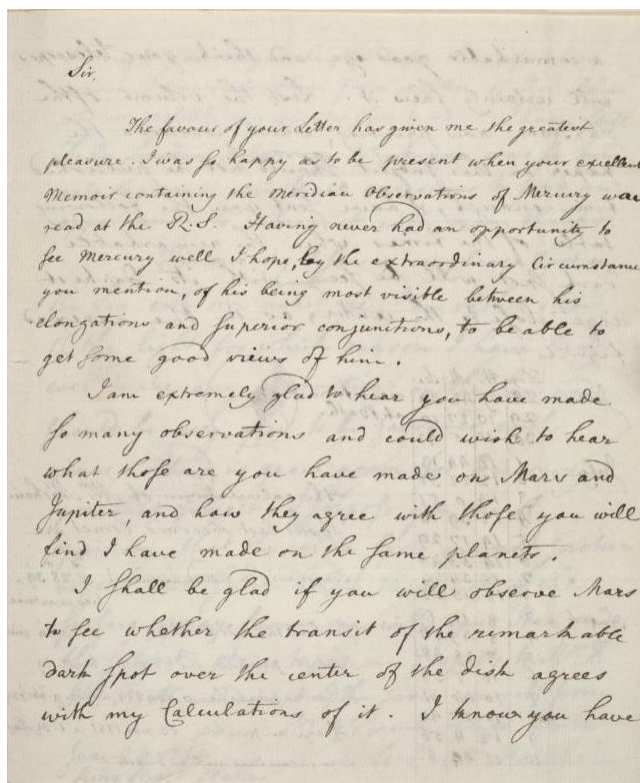 Sir,
The favour of your Letter has given me the greatest
pleasure. I was so happy as to be present when your excellent
Memoir containing the meridian Observations of Mercury was
read at the R. S. Having never had an opportunity to
see Mercury well I hope, by the extraordinary Circumstance
you mention, of his being most visible between his
elongations and superior conjunitions, to be able to
get some good views of him.
I am extremely glad to hear you have made
so many observations and could wish to hear
what those are you have made on Mars and
Jupiter, and how they agree with those you will
find I have made on the same planets.
I shall be glad if you will observe Mars
to see whether the transit of the remarkable
dark spot over the center of the disk agrees
with my Calculations of it. I know you have